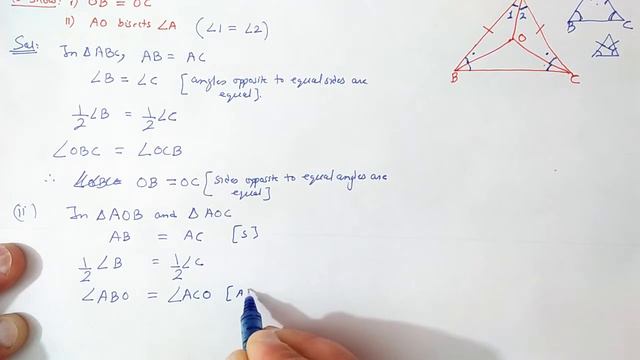 i) OB = OC
ii) AO bisects ∠A (∠1 = ∠2)
Sol: In △ABC, AB = AC
∠B = ∠C [angles opposite to equal sides are equal].
1/2 ∠B = 1/2 ∠C
∠OBC = ∠OCB
∴ OB = OC [sides opposite to equal angles are equal]
(ii) In △AOB and △AOC
AB = AC [S]
1/2 ∠B = 1/2 ∠C
∠ABO = ∠ACO [A
1 2
O
B C
B C